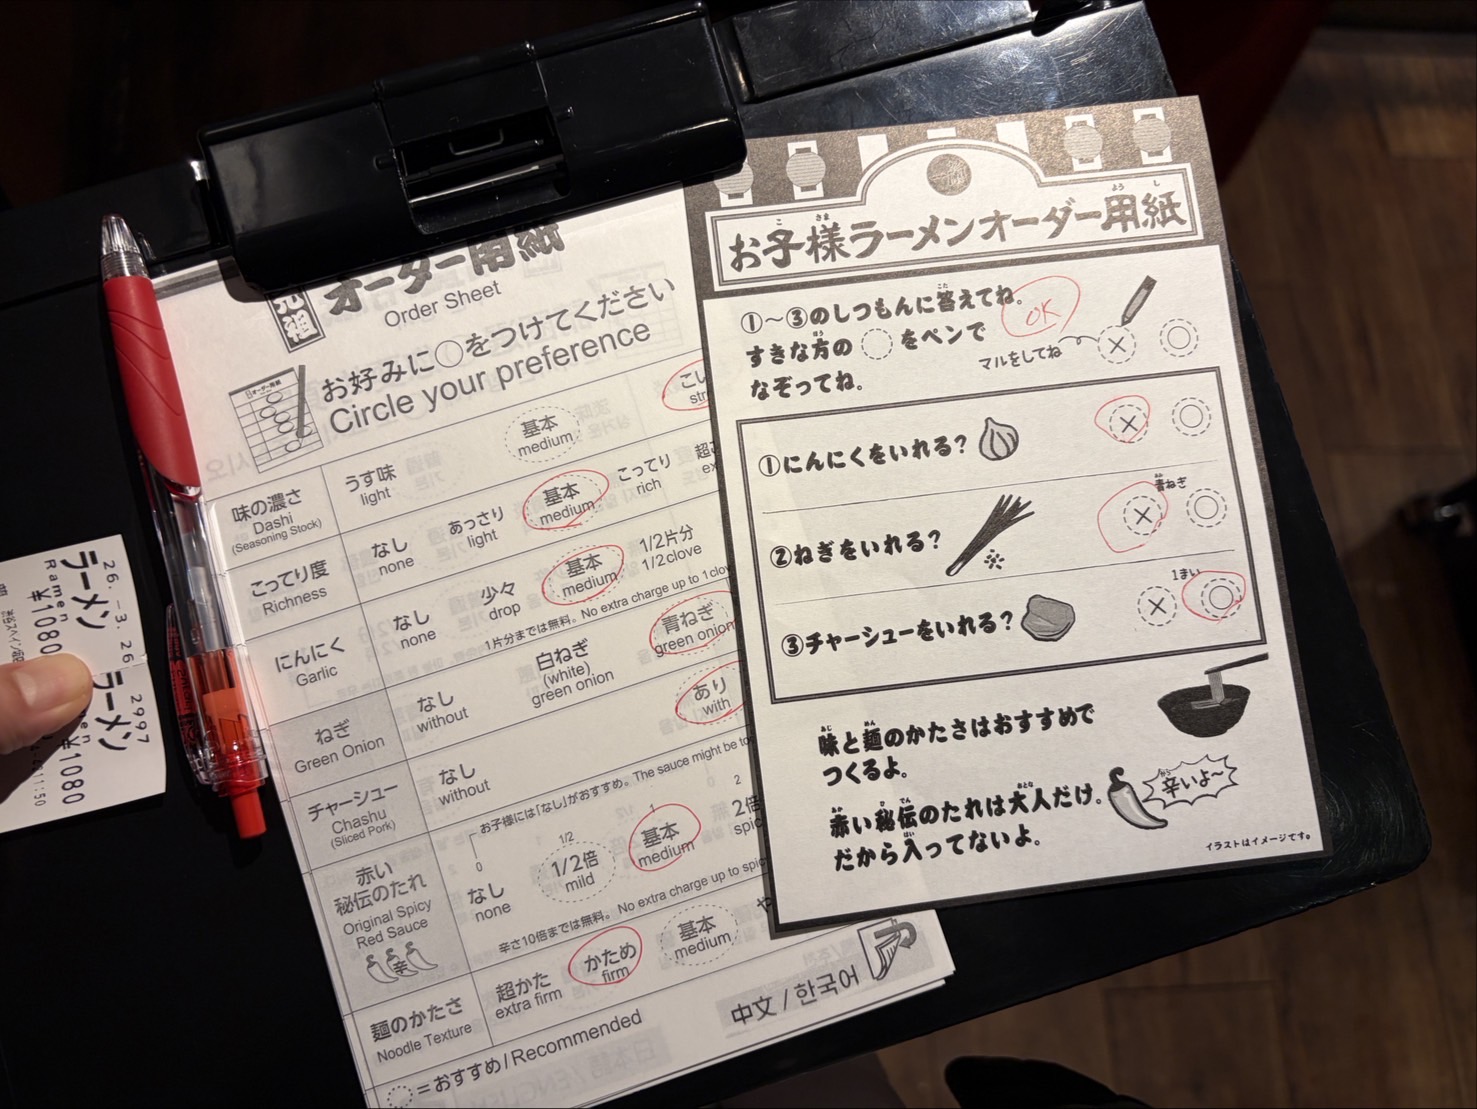 オーダー用紙
Order Sheet
お好みに○をつけてください
Circle your preference
味の濃さ
Dashi
(Seasoning Stock)
うす味
light
基本
medium
こい
str
こってり度
Richness
なし
none
あっさり
light
基本
medium
こってり
rich
超こ
ex
にんにく
Garlic
なし
none
少々
drop
基本
medium
1/2片分
1/2clove
1片分までは無料。No extra charge up to 1clov
ねぎ
Green Onion
なし
without
白ねぎ
(white)
green onion
青ねぎ
green onion
チャーシュー
Chashu
(Sliced Pork)
なし
without
あり
with
赤い
秘伝のたれ
Original Spicy
Red Sauce
辛
お子様には「なし」がおすすめ。The sauce might be to
0
1/2
1
2
なし
none
1/2倍
mild
基本
medium
2倍
spic
辛さ10倍までは無料。No extra charge up to spic
麺のかたさ
Noodle Texture
超かた
extra firm
かため
firm
基本
medium
=おすすめ/Recommended
中文/한국어
お子様ラーメンオーダー用紙
こ さま よう し
①〜③のしつもんに答えてね。
こた
OK
すきな方の をペンで
ほう
なぞってね。
マルをしてね
①にんにくをいれる?
②ねぎをいれる?
青ねぎ
あお
③チャーシューをいれる?
1まい
味と麺のかたさはおすすめで
あじ めん
つくるよ。
赤い秘伝のたれは大人だけ。
あか ひ でん おとな
だから入ってないよ。
はい
辛いよ〜
から
イラストはイメージです。
26.-3.26
ラーメン
Ramen
¥1080
2997
ラーメン
¥1080
11:50